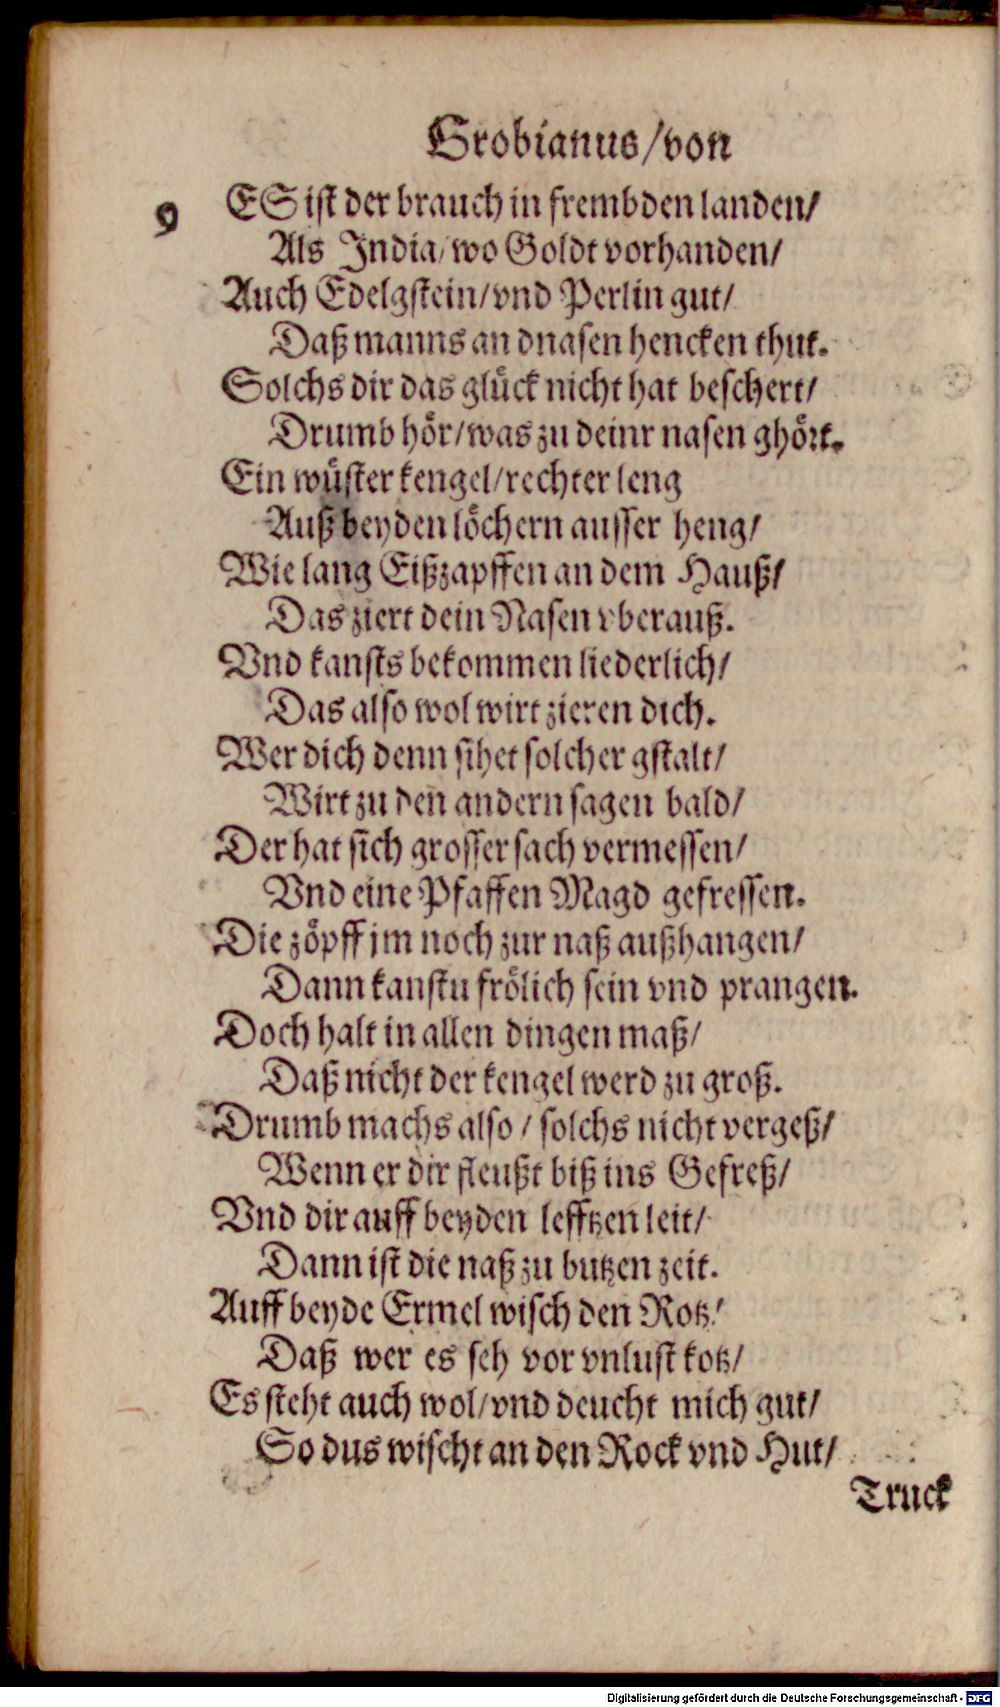 Grobianus/von
9 ES ist der brauch in frembden landen/
Als India/wo Goldt vorhanden/
Auch Edelgstein/vnd Perlin gut/
Daß manns an dnasen hencken thut.
Solchs dir das glück nicht hat beschert/
Drumb hör/was zu deinr nasen ghört.
Ein wüster kengel/rechter leng
Auß beyden löchern ausser heng/
Wie lang Eißzapffen an dem Hauß/
Das ziert dein Nasen vberauß.
Vnd kansts bekommen liederlich/
Das also wol wirt zieren dich.
Wer dich denn sihet solcher gstalt/
Wirt zu den andern sagen bald/
Der hat sich grosser sach vermessen/
Vnd eine Pfaffen Magd gefressen.
Die zöpff jm noch zur naß außhangen/
Dann kanstu frölich sein vnd prangen.
Doch halt in allen dingen maß/
Daß nicht der kengel werd zu groß.
Drumb machs also/solchs nicht vergeß/
Wenn er dir fleußt biß ins Gefreß/
Vnd dir auff beyden lefftzen leit/
Dann ist die naß zu butzen zeit.
Auff beyde Ermel wisch den Rotz/
Daß wer es seh vor vnlust kotz/
Es steht auch wol/vnd deucht mich gut/
So dus wischt an den Rock vnd Hut/
Truck
Digitalisierung gefördert durch die Deutsche Forschungsgemeinschaft - DFG